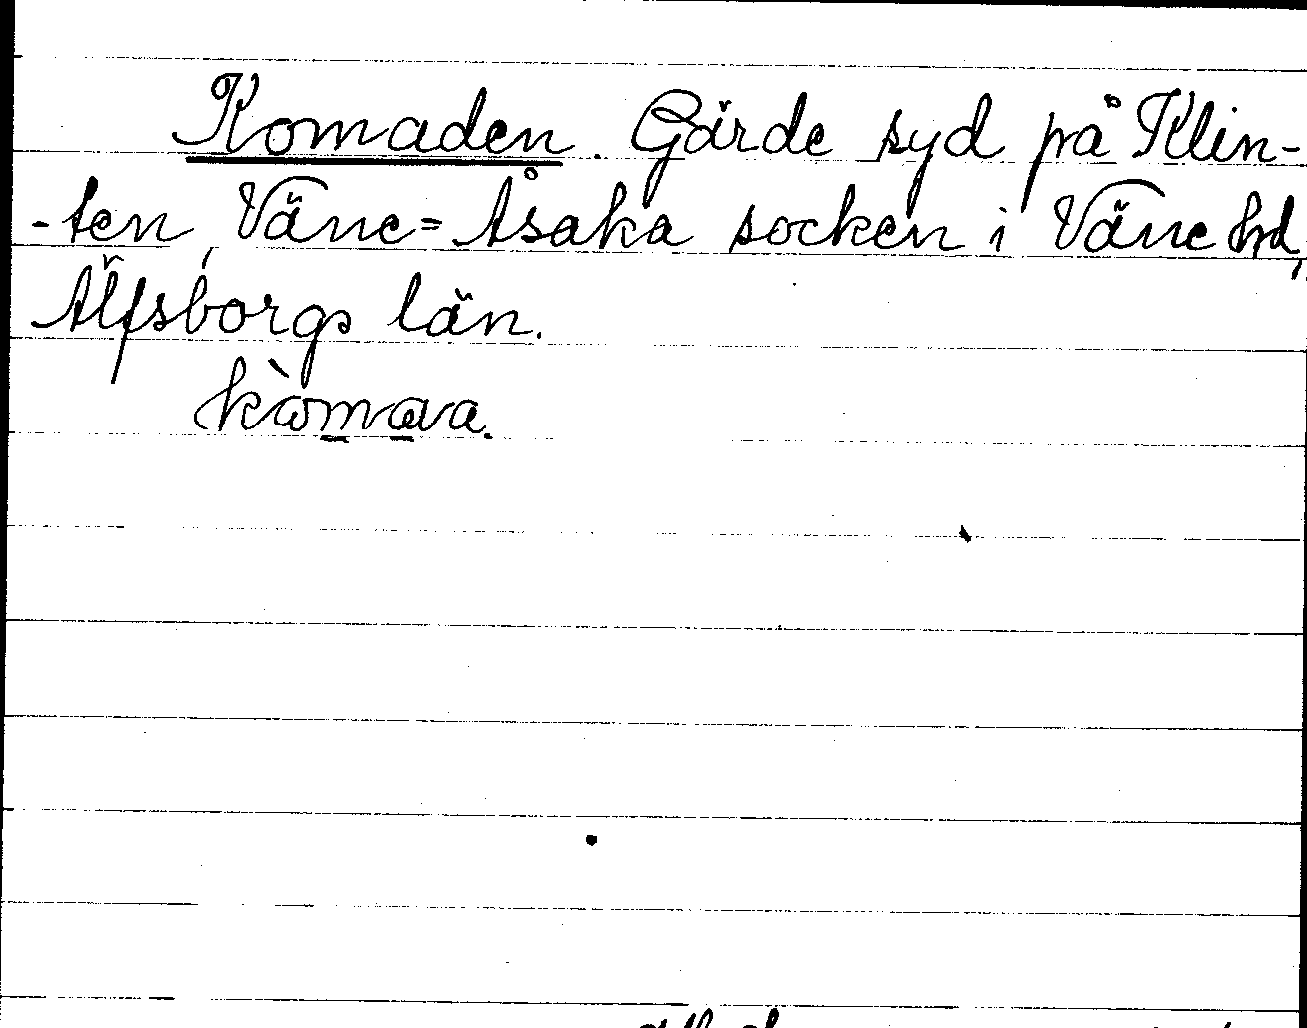 Komaden. Gärde syd på Klin-
-ten, Väne=Åsaka socken i Väne hd,
Älfsborgs län.
kòmava.